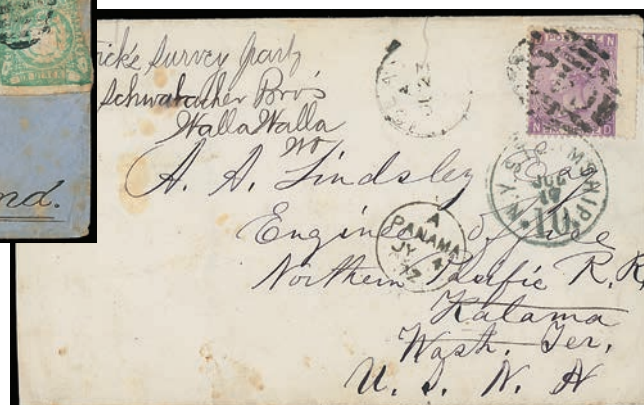 nd.
Survey party
Schwabacher Bro's
Walla Walla
WT
A. A. Lindsley Esq
Engineer Office
Northern Pacific R. R.
Kalama
Wash. Ter.
U. S. N. A
A
PANAMA
JY 4
72
N.Y. STEAMSHIP
JUL
10